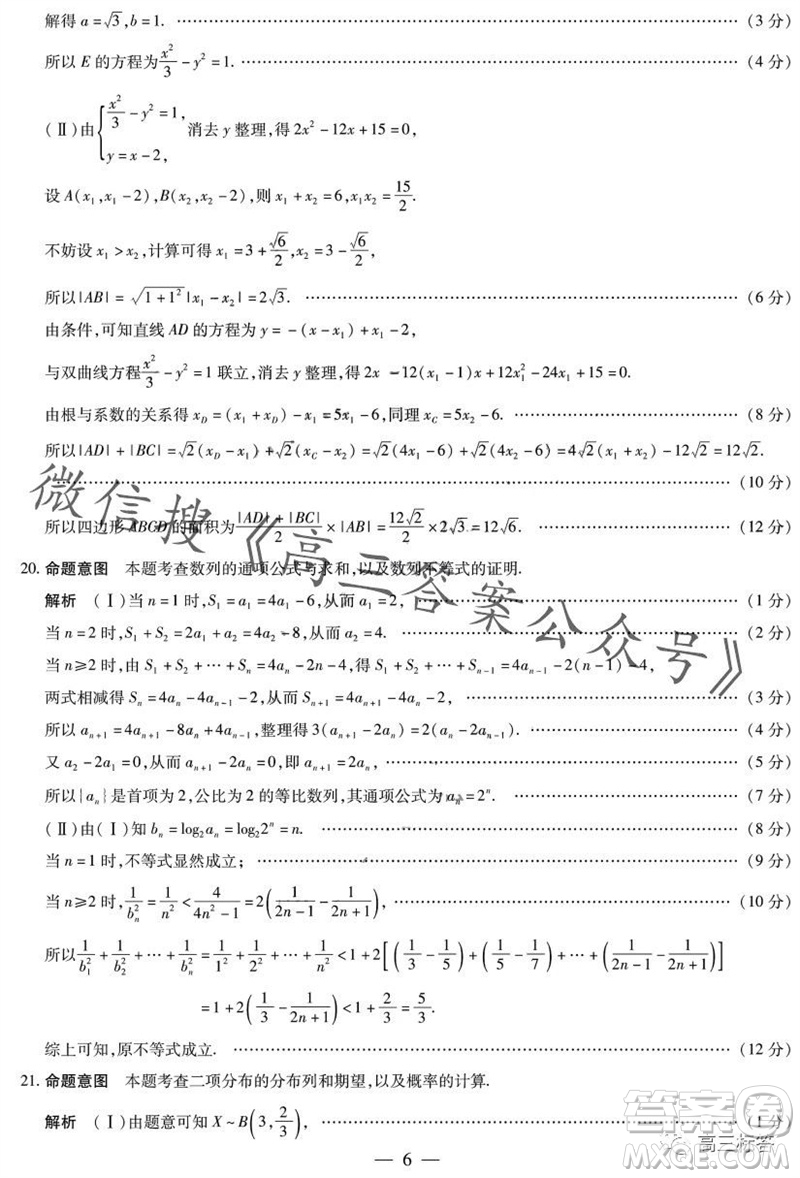 解得 a=√3,b=1. ……(3 分)
所以 E 的方程为 x²/3-y²=1. ……(4 分)
(Ⅱ)由{x²/3-y²=1, y=x-2, 消去 y 整理,得 2x²-12x+15=0,
设 A(x₁,x₁-2),B(x₂,x₂-2),则 x₁+x₂=6,x₁x₂=15/2.
不妨设 x₁>x₂,计算可得 x₁=3+√6/2,x₂=3-√6/2,
所以|AB|=√(1+1²)|x₁-x₂|=2√3. ……(6 分)
由条件,可知直线 AD 的方程为 y=-(x-x₁)+x₁-2,
与双曲线方程 x²/3-y²=1 联立,消去 y 整理,得 2x-12(x₁-1)x+12x₁²-24x₁+15=0.
由根与系数的关系得 x_D=(x₁+x_D)-x₁=5x₁-6,同理 x_C=5x₂-6. ……(8 分)
所以|AD|+|BC|=√2(x_D-x₁)+√2(x_C-x₂)=√2(4x₁-6)+√2(4x₂-6)=4√2(x₁+x₂)-12√2=12√2.
……(10 分)
所以四边形 ABCD 的面积为 (|AD|+|BC|)/2×|AB|=12√2/2×2√3=12√6. ……(12 分)
20. 命题意图 本题考查数列的通项公式与求和,以及数列不等式的证明.
解析 (Ⅰ)当 n=1 时,S₁=a₁=4a₁-6,从而 a₁=2, ……(1 分)
当 n=2 时,S₁+S₂=4a₂-8,从而 a₂=4. ……(2 分)
当 n≥2 时,由 S₁+S₂+…+Sₙ=4aₙ-2n-4,得 S₁+S₂+…+Sₙ₋₁=4aₙ₋₁-2(n-1)-4,
两式相减得 Sₙ=4aₙ-4aₙ₋₁-2,从而 Sₙ₊₁=4aₙ₊₁-4aₙ-2, ……(3 分)
所以 aₙ₊₁=4aₙ₊₁-8aₙ+4aₙ₋₁,整理得 3(aₙ₊₁-2aₙ)=2(aₙ-2aₙ₋₁). ……(4 分)
又 a₂-2a₁=0,从而 aₙ₊₁-2aₙ=0,即 aₙ₊₁=2aₙ, ……(5 分)
所以{aₙ}是首项为 2,公比为 2 的等比数列,其通项公式为 aₙ=2ⁿ. ……(7 分)
(Ⅱ)由(Ⅰ)知 bₙ=log₂aₙ=log₂2ⁿ=n. ……(8 分)
当 n=1 时,不等式显然成立; ……(9 分)
当 n≥2 时,1/bₙ²=1/n²<4/(4n²-1)=2(1/(2n-1)-1/(2n+1)), ……(10 分)
所以 1/b₁²+1/b₂²+…+1/bₙ²=1/1²+1/2²+…+1/n²<1+2[(1/3-1/5)+(1/5-1/7)+…+(1/(2n-1)-1/(2n+1))]
=1+2(1/3-1/(2n+1))<1+2/3=5/3.
综上可知,原不等式成立. ……(12 分)
21. 命题意图 本题考查二项分布的分布列和期望,以及概率的计算.
解析 (Ⅰ)由题意可知 X~B(3,2/3), ……(1 分)
— 6 —
微信搜《高三答案公众号》
答案卷
高三标答